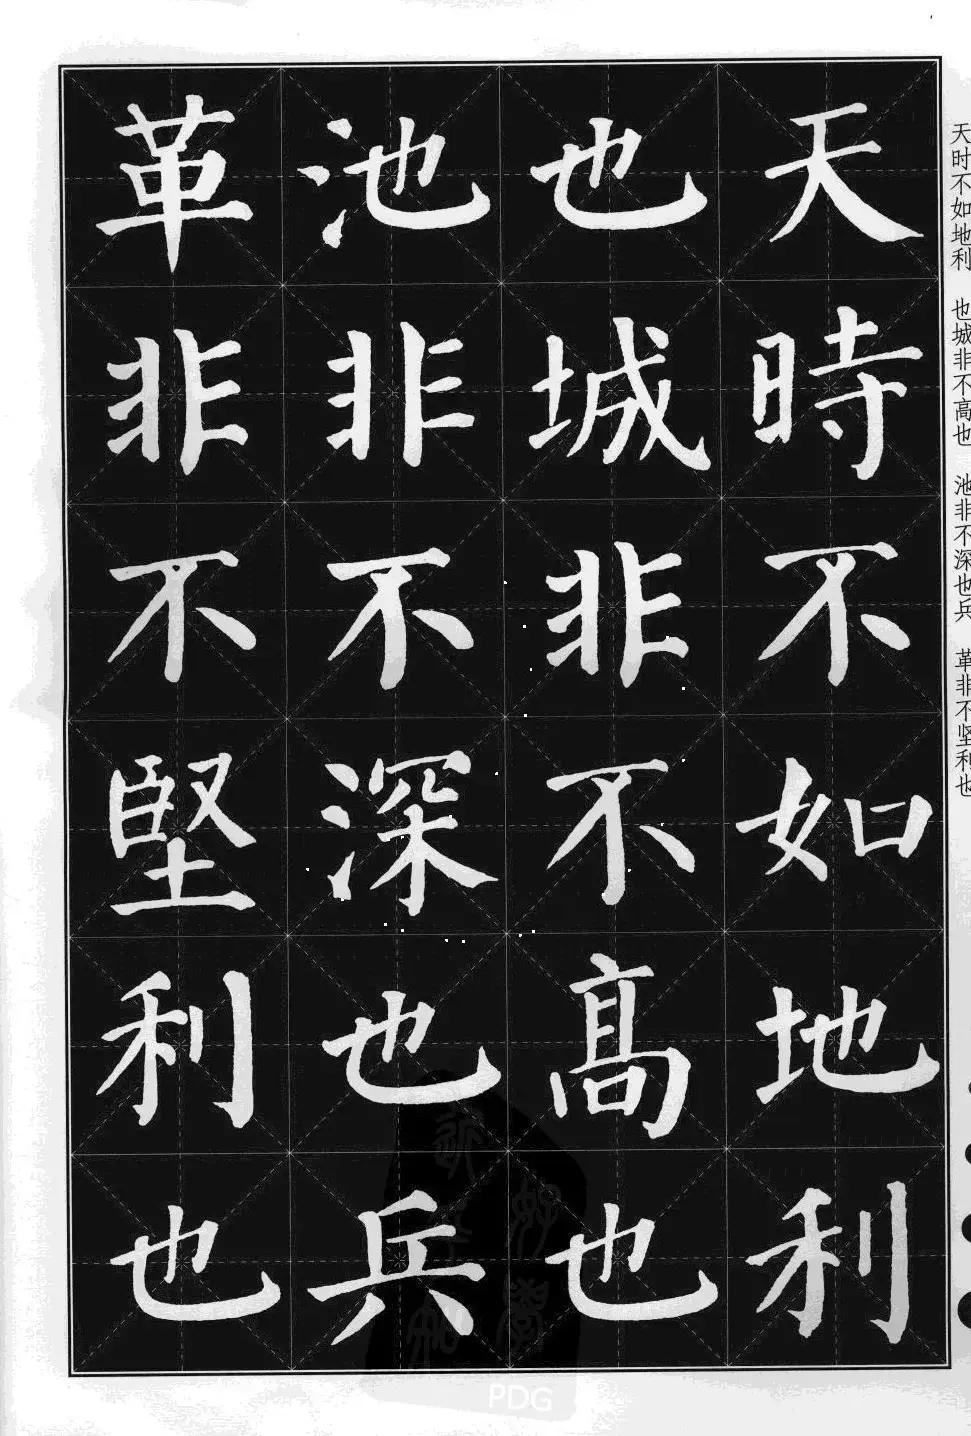 天時不如地利
也城非不高也
池非不深也兵
革非不堅利也
天时不如地利 也城非不高也 池非不深也兵 革非不坚利也
PDG